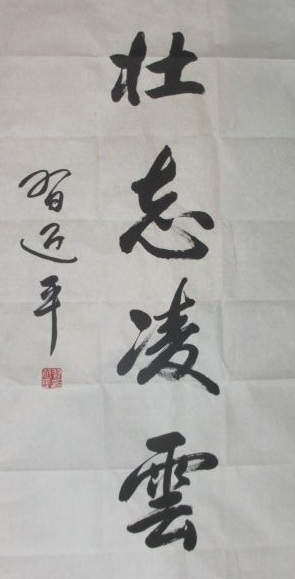 壮志凌雲
習近平